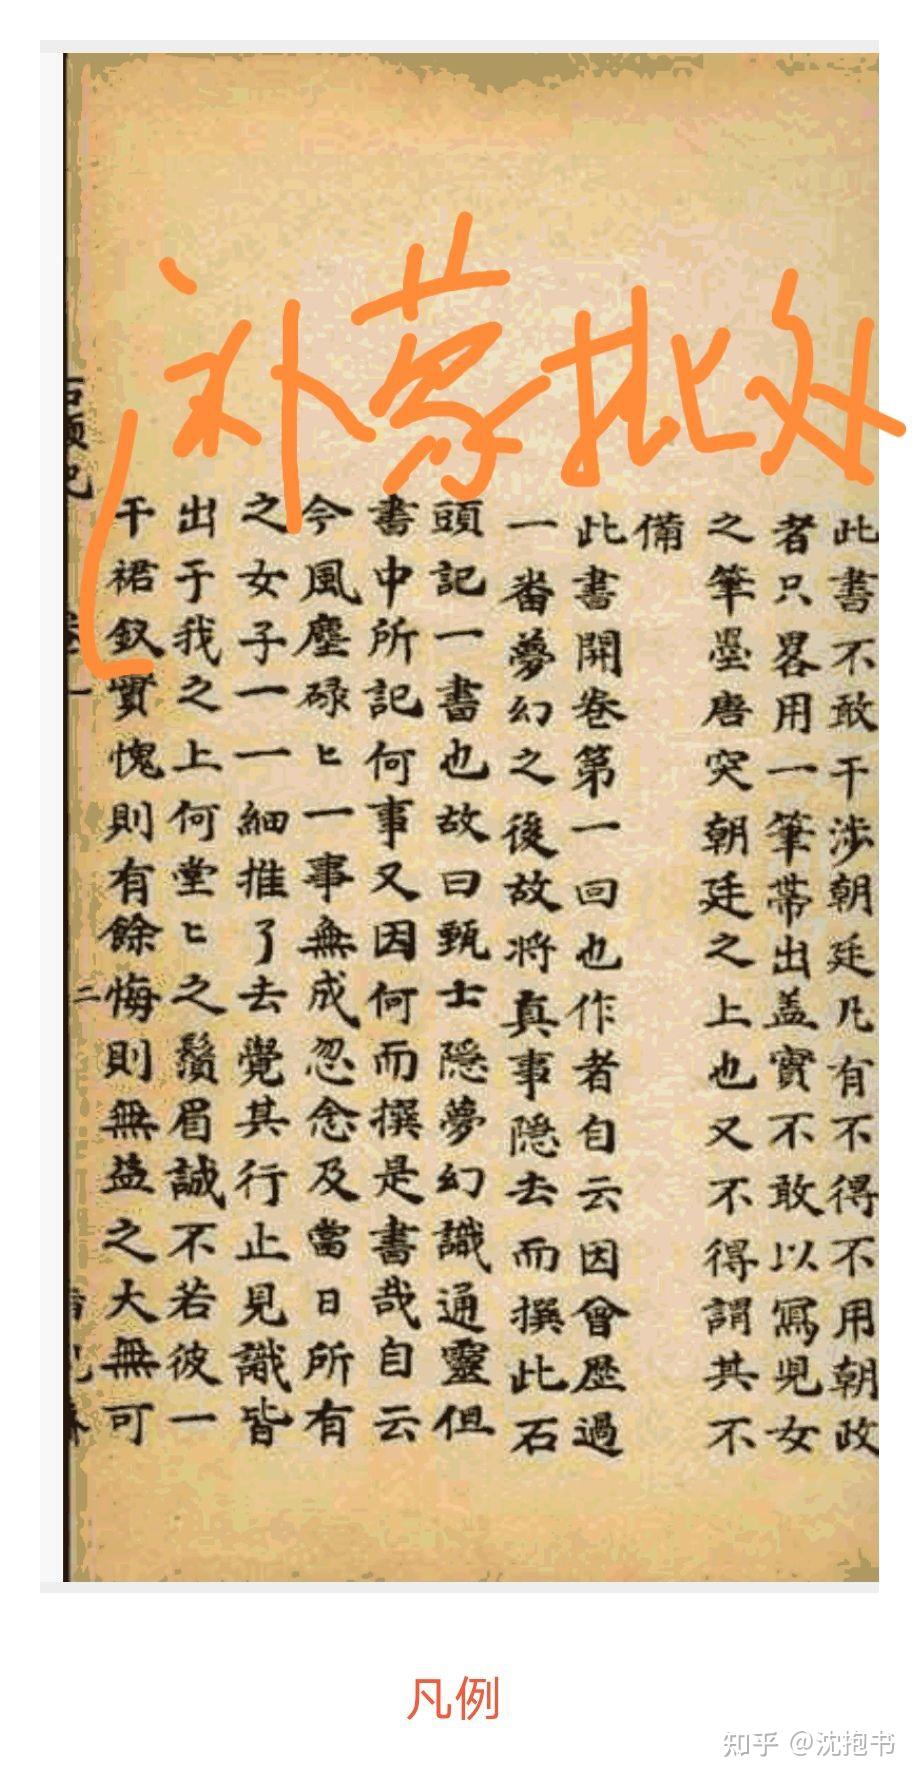 补蒙批处
此書不敢干涉朝廷凡有不得不用朝政
者只畧用一筆帶出盖實不敢以寫児女
之筆墨唐突朝廷之上也又不得謂其不
備
此書開卷第一回也作者自云因曾歷過
一番夢幻之後故将真事隐去而撰此石
頭記一書也故曰甄士隐夢幻識通靈但
書中所記何事又因何而撰是書哉自云
今風塵碌ヒ一事無成忽念及當日所有
之女子一一細推了去覺其行止見識皆
出于我之上何堂ヒ之鬚眉誠不若彼一
干裙釵實愧則有餘悔則無益之大無可
二
凡例
知乎 @沈抱书